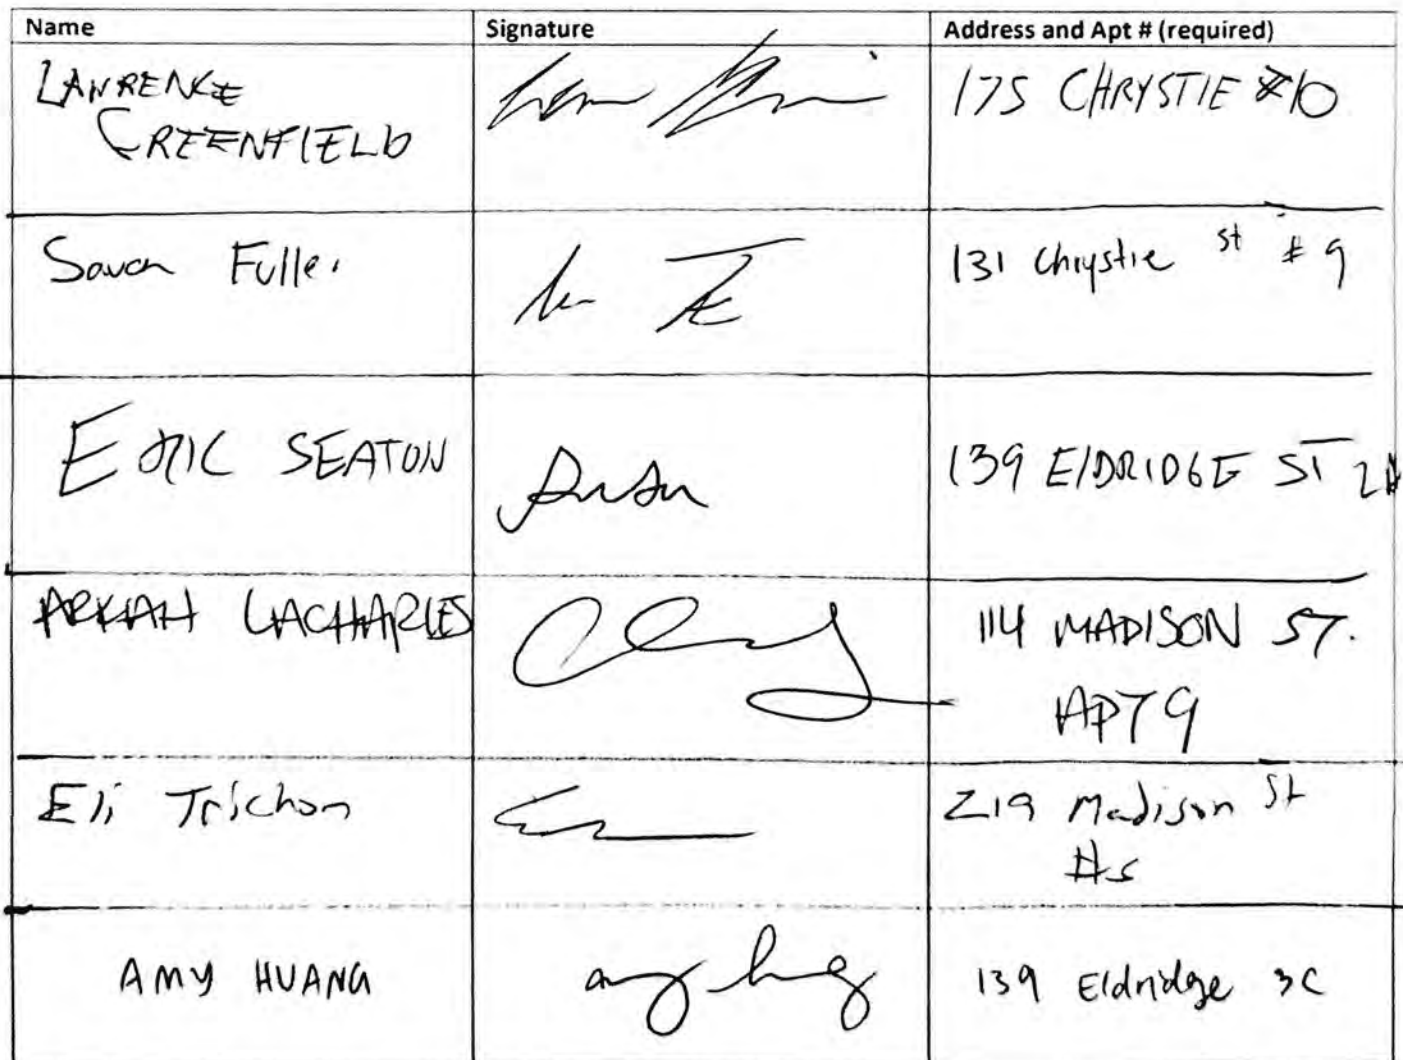 Name Signature Address and Apt # (required)
LAWRENCE
GREENFIELD
175 CHRYSTIE #10
Fuller
131 Chrystie st # 9
ERIC SEATON
139 ElDRIDGE ST
LACHARLES
114 MADISON ST.
APT 9
Eli Trichon
219 Madison St
#5
AMY HUANG
amy huang
139 Eldridge 3C